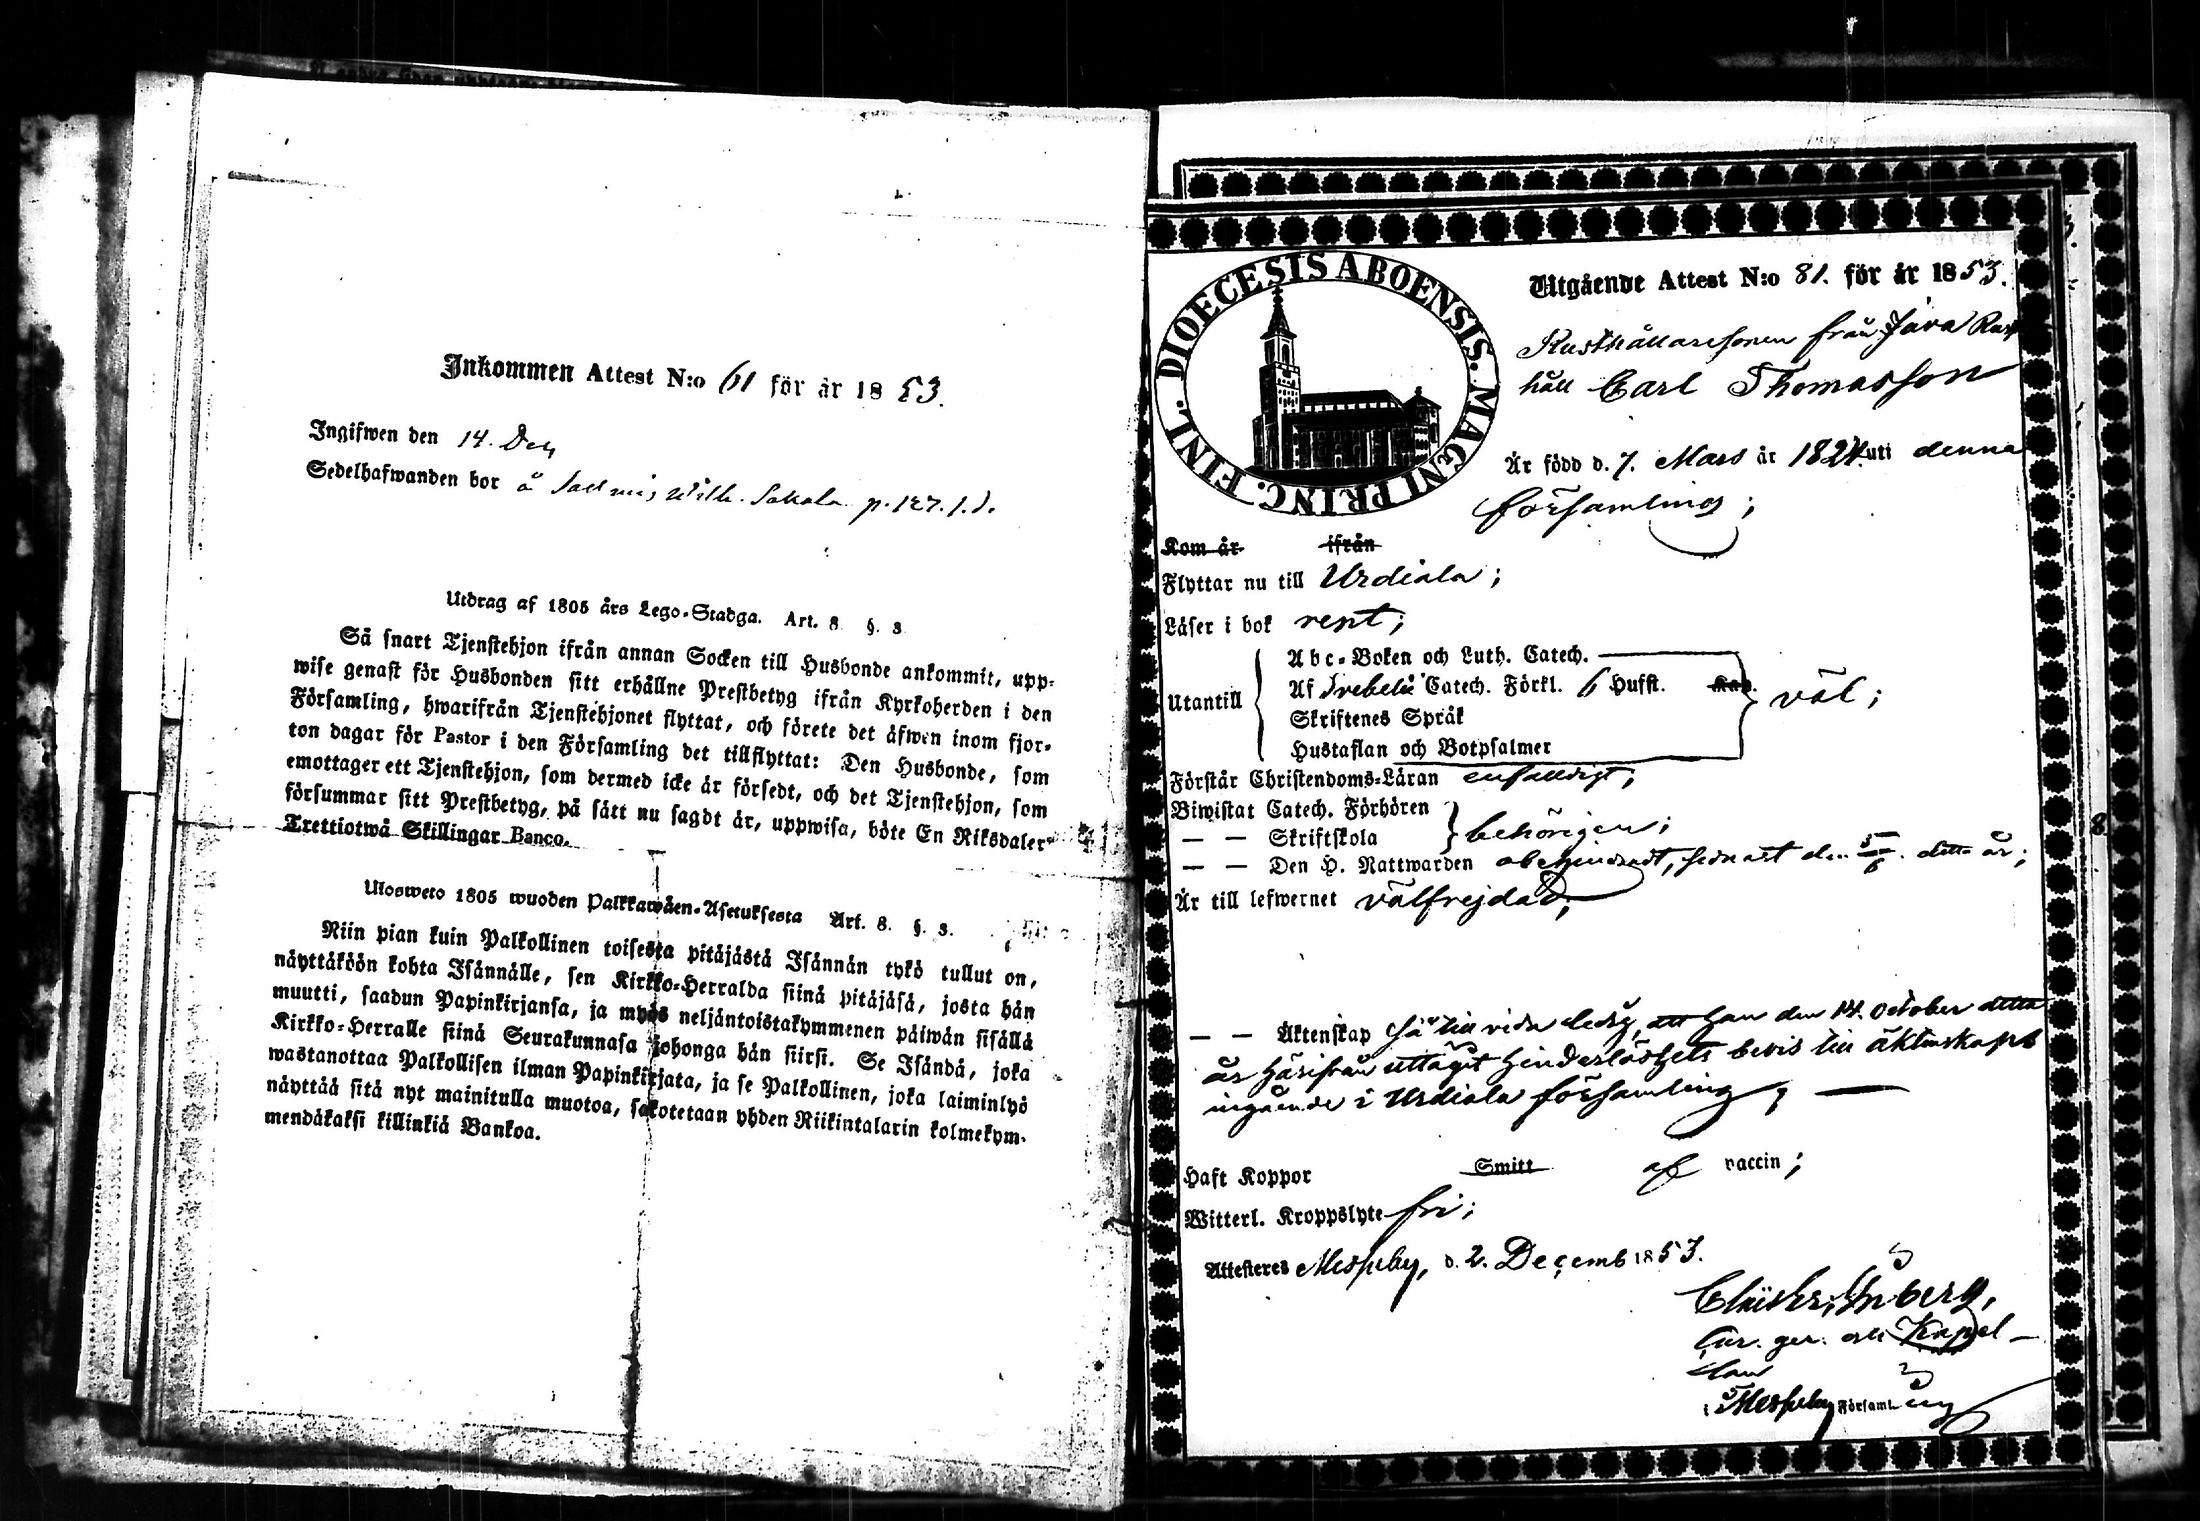 Inkommen Attest N:o 61 för år 1853.
Ingifwen den 14. Dec
Sedelhafwanden bor å p. 127. f. d.
Utdrag af 1805 års Lego-Stadga. Art. 8 §. 3
Så snart Tjenstehjon ifrån annan Socken till Husbonde ankommit, upp-
wise genast för Husbonden sitt erhållne Prestbetyg ifrån Kyrkoherden i den
Församling, hwarifrån Tjenstehjonet flyttat, och förete det äfwen inom fjor-
ton dagar för Pastor i den Församling det tillflyttat: Den Husbonde, som
emottager ett Tjenstehjon, som dermed icke är försedt, och det Tjenstehjon, som
försummar sitt Prestbetyg, på sätt nu sagdt är, uppwisa, böte En Riksdaler
Trettiotwå Skillingar Banco.
Ulosweto 1805 wuoden Palkkawäen-Asetuksesta Art. 8. §. 3.
Niin pian kuin Palkollinen toisesta pitäjästä Isännän tykö tullut on,
näyttäköön kohta Isännälle, sen Kirkko-Herralda siinä pitäjäsä, josta hän
muutti, saadun Papinkirjansa, ja myös neljäntoistakymmenen päiwän sisällä
Kirkko-Herralle siinä Seurakunnasa johonga hän siirsi. Se Isändä, joka
wastanottaa Palkollisen ilman Papinkirjata, ja se Palkollinen, joka laiminlyö
näyttää sitä nyt mainitulla muotoa, sakotetaan yhden Riikintalarin kolmekym-
mendäkaksi killinkiä Bankoa.
DIOECESIS ABOENSIS. MAGNI PRINC. FINL.
Utgående Attest N:o 81. för år 1853.
Rusthållaresonen från Jara Rust
håll Carl Thomasson
Är född d. 7. Mars år 1824. uti denna
församling;
Kom år ifrån
Flyttar nu till Urdiala;
Läser i bok rent;
Utantill
Abc-Boken och Luth. Catech.
Af Svebelii Catech. Förkl. 6 Hufst. Kap.
Skriftenes Språk
Hustaflan och Botpsalmer
väl;
Förstår Christendoms-Läran enfaldigt;
Biwistat Catech. Förhören
— — Skriftskola
behörigen;
— — Den H. Nattwarden obehindradt, sednast den 5/6. detta år;
Är till lefwernet välfrejdad;
— — Äktenskap så till vida ledig, att han den 14. October detta
år härifrån uttagit hinderslöshets bevis till äktenskaps
ingående i Urdiala församling; —
Haft Koppor Smitt af vaccin;
Witterl. Kroppslyte fri;
Attesteres Messuby, d. 2. Decemb 1853.
Cur. ger. och Kapel-
lan
i Messuby Församling